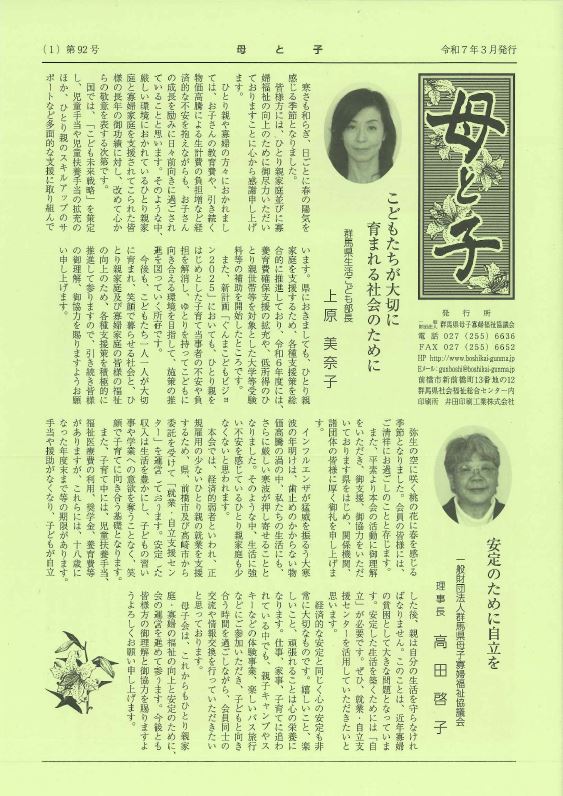 (1)第92号
母と子
令和7年3月発行
母と子
発行所
一般財団法人 群馬県母子寡婦福祉協議会
電話 027 (255) 6636
FAX 027 (255) 6652
HP http://www.boshikai-gunma.jp
Eメール:gunboshi@boshikai-gunma.jp
前橋市新前橋町13番地の12
群馬県社会福祉総合センター内
印刷所 井田印刷工業株式会社
こどもたちが大切に
育まれる社会のために
群馬県生活こども部長
上原 美奈子
寒さも和らぎ、日ごとに春の陽気を
感じる季節となりました。
皆様方には、ひとり親家庭並びに寡
婦福祉の向上のために御尽力いただい
ておりますことに心から感謝申し上げ
ます。
ひとり親や寡婦の方々におかれまし
ては、お子さんの教育費や、引き続く
物価高騰による生計費の負担増など経
済的な不安を抱えながらも、お子さん
の成長を励みに日々前向きに過ごされ
ていることと思います。そのような中、
厳しい環境におかれているひとり親家
庭と寡婦家庭を支援されてこられた皆
様の長年の御功績に対し、改めて心か
らの敬意を表する次第です。
国では、「こども未来戦略」を策定
し、児童手当や児童扶養手当の拡充の
ほか、ひとり親のスキルアップのサ
ポートなど多面的な支援に取り組んで
います。県におきましても、ひとり親
家庭を支援するため、各種支援策を総
合的に推進しており、令和6年度には、
養育費確保支援の拡充や、低所得のひ
とり親世帯等を対象とした大学等受験
料等の補助を開始したところです。
また、新計画「ぐんまこどもビジョ
ン2025」においても、ひとり親を
はじめとした子育て当事者の不安や負
担を解消し、ゆとりを持ってこどもに
向き合える環境を目指して、施策の推
進を図っていく所存です。
今後も、こどもたち一人一人が大切
に育まれ、笑顔で暮らせる社会と、ひ
とり親家庭及び寡婦家庭の皆様の福祉
の向上のため、各種支援策を積極的に
推進して参りますので、引き続き皆様
の御理解、御協力を賜りますようお願
い申し上げます。
安定のために自立を
一般財団法人群馬県母子寡婦福祉協議会
理事長 高田 啓子
弥生の空に咲く桃の花に春を感じる
季節となりました。会員の皆様には、
ご清祥にお過ごしのことと存じます。
また、平素より本会の活動に御理解
をいただき、御支援、御協力をいただ
いております県をはじめ、関係機関、
諸団体の皆様に厚く御礼を申し上げま
す。
インフルエンザが猛威を振るう大寒
波の年明けは、歯止めのかからない物
価高騰の渦の中、私たちの生活にも、
さらに厳しい寒波が押し寄せることと
なりました。そのような中、生活に強
い不安を感じているひとり親家庭も少
なくないと思われます。
本会では、経済的弱者といわれ、正
規雇用の少ないひとり親の就業を支援
するため、県、前橋市及び高崎市から
委託を受けて「就業・自立支援セン
ター」を運営しております。安定した
収入は生活を豊かにし、子どもの習い
事や学業への意欲を奪うことなく、笑
顔で子育てに向き合う基礎となります。
また、子育て中には、児童扶養手当、
福祉医療費の利用、奨学金、養育費等
がありますが、これらには、十八歳に
なった年度末まで等の期限があります。
手当や援助がなくなり、子どもが自立
した後、親は自分の生活を守らなけれ
ばなりません。このことは、近年寡婦
の貧困として大きな問題となっていま
す。安定した生活を築くためには「自
立」が必要です。ぜひ、就業・自立支
援センターを活用していただきたいと
思います。
経済的な安定と同じく心の安定も非
常に大切なものです。嬉しいこと、楽
しいこと、頑張れることは心の栄養に
なります。仕事、家事、子育てに追わ
れている中でも、親子キャンプやス
キーなどの体験事業、楽しいバス旅行
などにご参加いただき、子どもと向き
合う時間を過ごしながら、会員同士の
交流や情報交換を行っていただきたい
と思っております。
母子会は、これからもひとり親家
庭・寡婦の福祉の向上と安定のために、
会の運営を進めて参ります。今後とも
皆様方の御理解と御協力を賜りますよ
うよろしくお願い申し上げます。